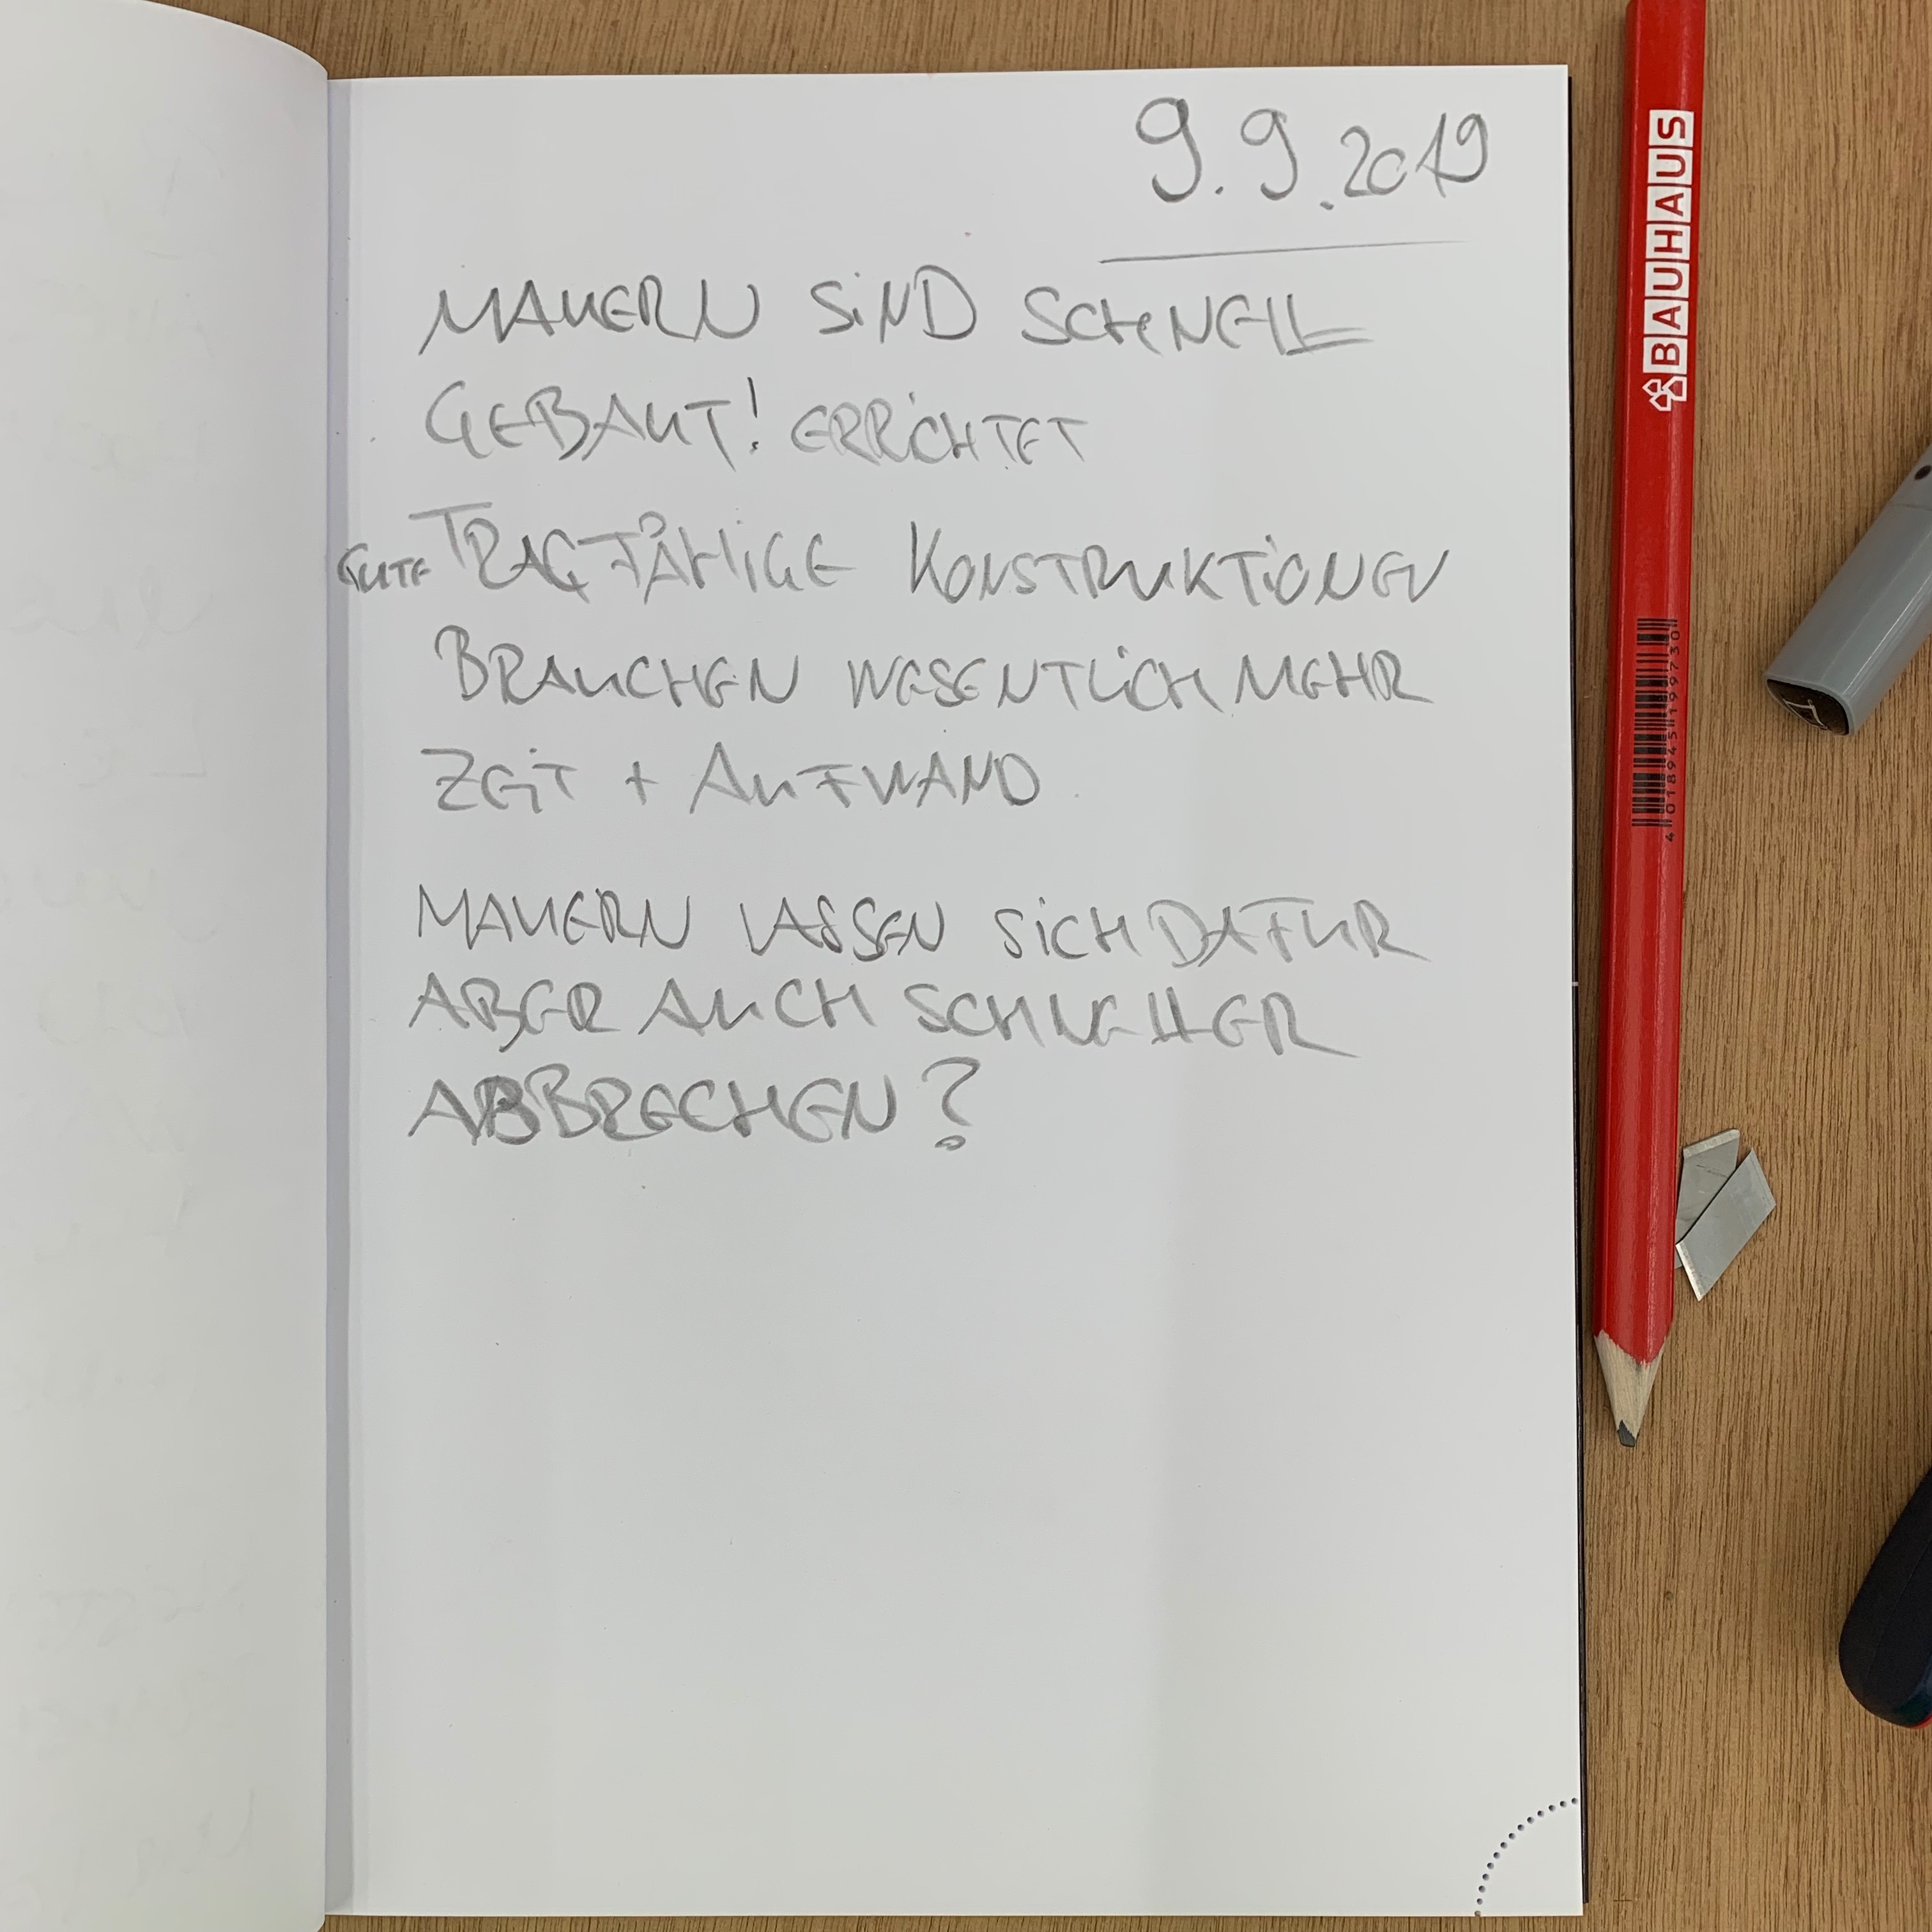 9.9.2019
MAUERN SiND SCHNELL
GEBAUT! ERRiCHTET
GUTE TRAGFÄHiGE KONSTRUKTiONEN
BRAUCHEN WESENTLiCH MEHR
ZEiT + AUFWAND
MAUERN LASSEN SiCH DAFUR
ABER AUCH SCHNELLER
ABBRECHEN?
BAUHAUS
4 018945 199730